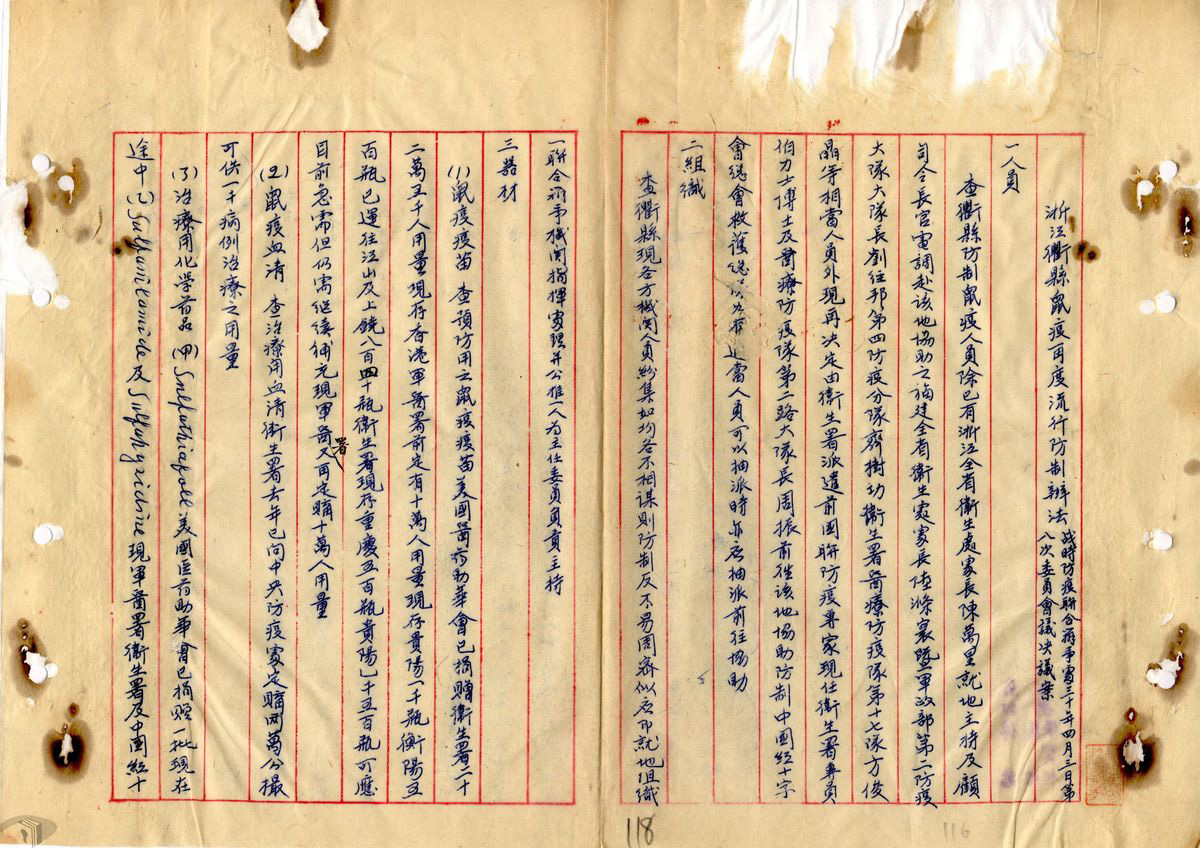 浙江衢縣鼠疫再度流行防制辦法
战時防疫联合辦事處三十年四月三日第
八次委員會議決議案
一人員
查衢縣防制鼠疫人員除已有浙江全省衛生處處長陳萬里就地主持及顧
司令長官電調赴該地協助之福建全省衛生處處長陸滌寰暨軍政部第二防疫
大隊大隊長劉经邦第四防疫分隊齊樹功衛生署醫療防疫隊第十七隊方俊
晶等相當人員外現再决定由衛生署派遣前國聯防疫專家現任衛生署專員
伯力士博士及醫療防疫隊第二路大隊長周振前往該地協助防制中國红十字
會总會救護總隊如有適當人員可以抽派時亦應抽派前往協助
二組織
查衢縣現各方機関人員紛集如均各不相谋則防制反不易周密似应即就地組織
一聯合辦事機関指揮處理并公推一人为主任委員負責主持
三器材
(1)鼠疫疫苗 查預防用之鼠疫疫苗美國醫药助华會已捐贈衛生署二十
二萬五千人用量現存香港軍醫署前定有十萬人用量現存貴陽一千瓶衡陽五
百瓶已運往江山及上饒八百四十瓶衛生署現存重慶五百瓶貴陽七千五百瓶可應
目前急需但仍需继续補充現軍醫署又再定購十萬人用量
(2)鼠疫血清 查治療用血清衛生署去年已向中央防疫處定購两萬公撮
可供一千病例治療之用量
(3)治療用化学药品 (甲)Sulfathiazole美國医药助华會已捐贈一批現在
途中(乙)Sulfanilamide及Sulfapyridine現軍醫署衛生署及中國红十
118
116